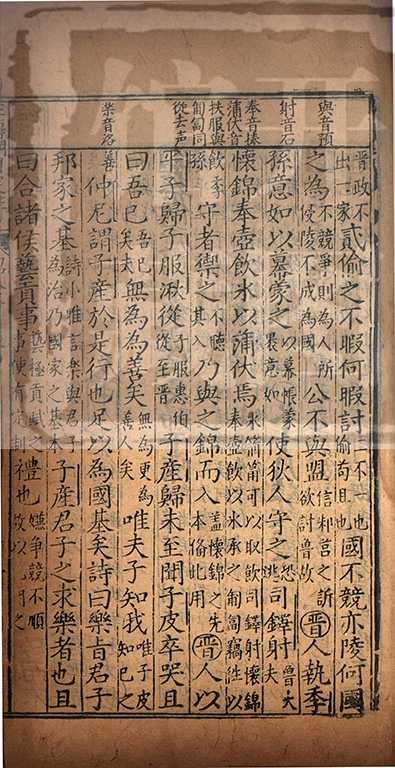 與音預
射音石
奉音捧
蒲伏音
扶服與
匍匐同
從去声
樂音洛
晉政不出一家貳偷之不暇何暇討二不一也偷苟且也國不競亦陵何國
之為不競爭則為人所侵陵不成為國公不與盟信邾莒之訴欲討魯故晉人執季
孫意如以幕蒙之幕帳蒙裹意如使狄人守之恐逃司鐸射魯大夫
懷錦奉壺飲冰以蒲伏焉冰箭筩可以取飲司鐸射懷錦奉壺飲以冰承之匍匐竊往以
飲季孫守者禦之不聽其入乃與之錦而入蓋懷錦之先本俻此用晉人以
平子歸子服湫從子服惠伯從至晉子產歸未至聞子皮卒哭且
曰吾已吾已矣夫無為為善矣無為更為善人矣唯夫子知我唯子皮知己之
善仲尼謂子產於是行也足以為國基矣詩曰樂旨君子
邦家之基詩小雅言樂與君子為治乃國家之基本子產君子之求樂者也且
曰合諸侯藝貢事藝極貢賦之事使有定制禮也嫌爭競不順故以礼明之